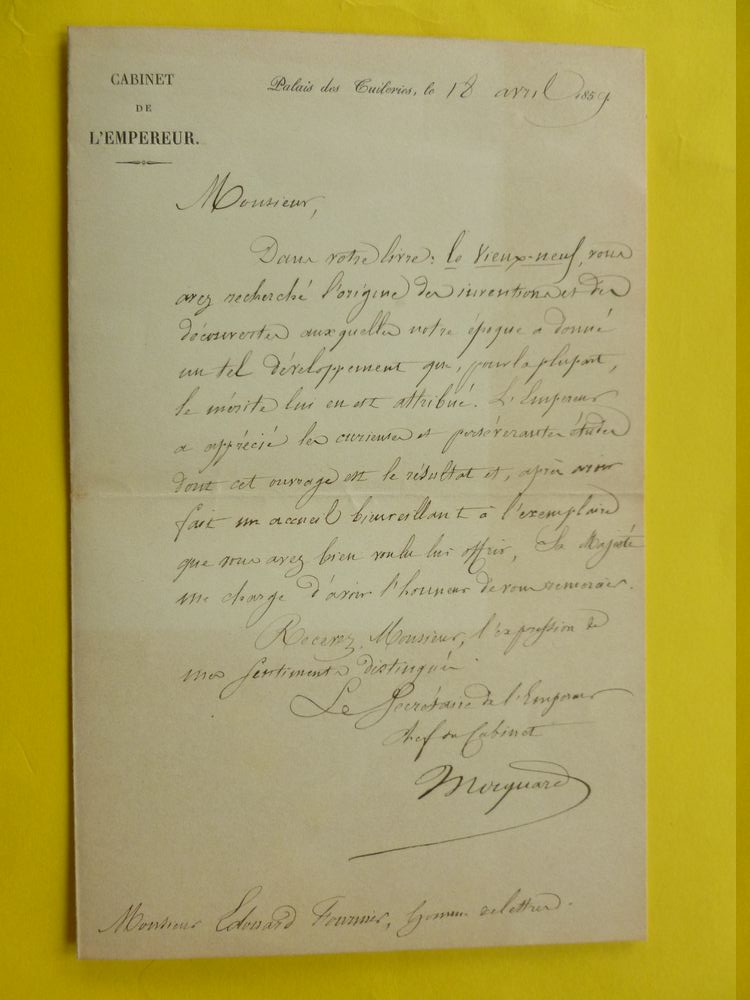 CABINET
DE
L'EMPEREUR.
Palais des Tuileries, le 18 avril 1859
Monsieur,
Dans votre livre: le Vieux-neuf, vous
avez recherché l'origine des inventions et des
découvertes auxquelles notre époque a donné
un tel développement que, pour la plupart,
le mérite lui en est attribué. L'Empereur
a apprécié les curieuses et persévérantes études
dont cet ouvrage est le résultat et, après avoir
fait un accueil bienveillant à l'exemplaire
que vous avez bien voulu lui offrir, Sa Majesté
me charge d'avoir l'honneur de vous remercier.
Recevez, Monsieur, l'expression de
mes sentiments distingués.
Le Secrétaire de l'Empereur
Chef du Cabinet
Mocquard
Monsieur Edouard Fournier, homme de lettres.